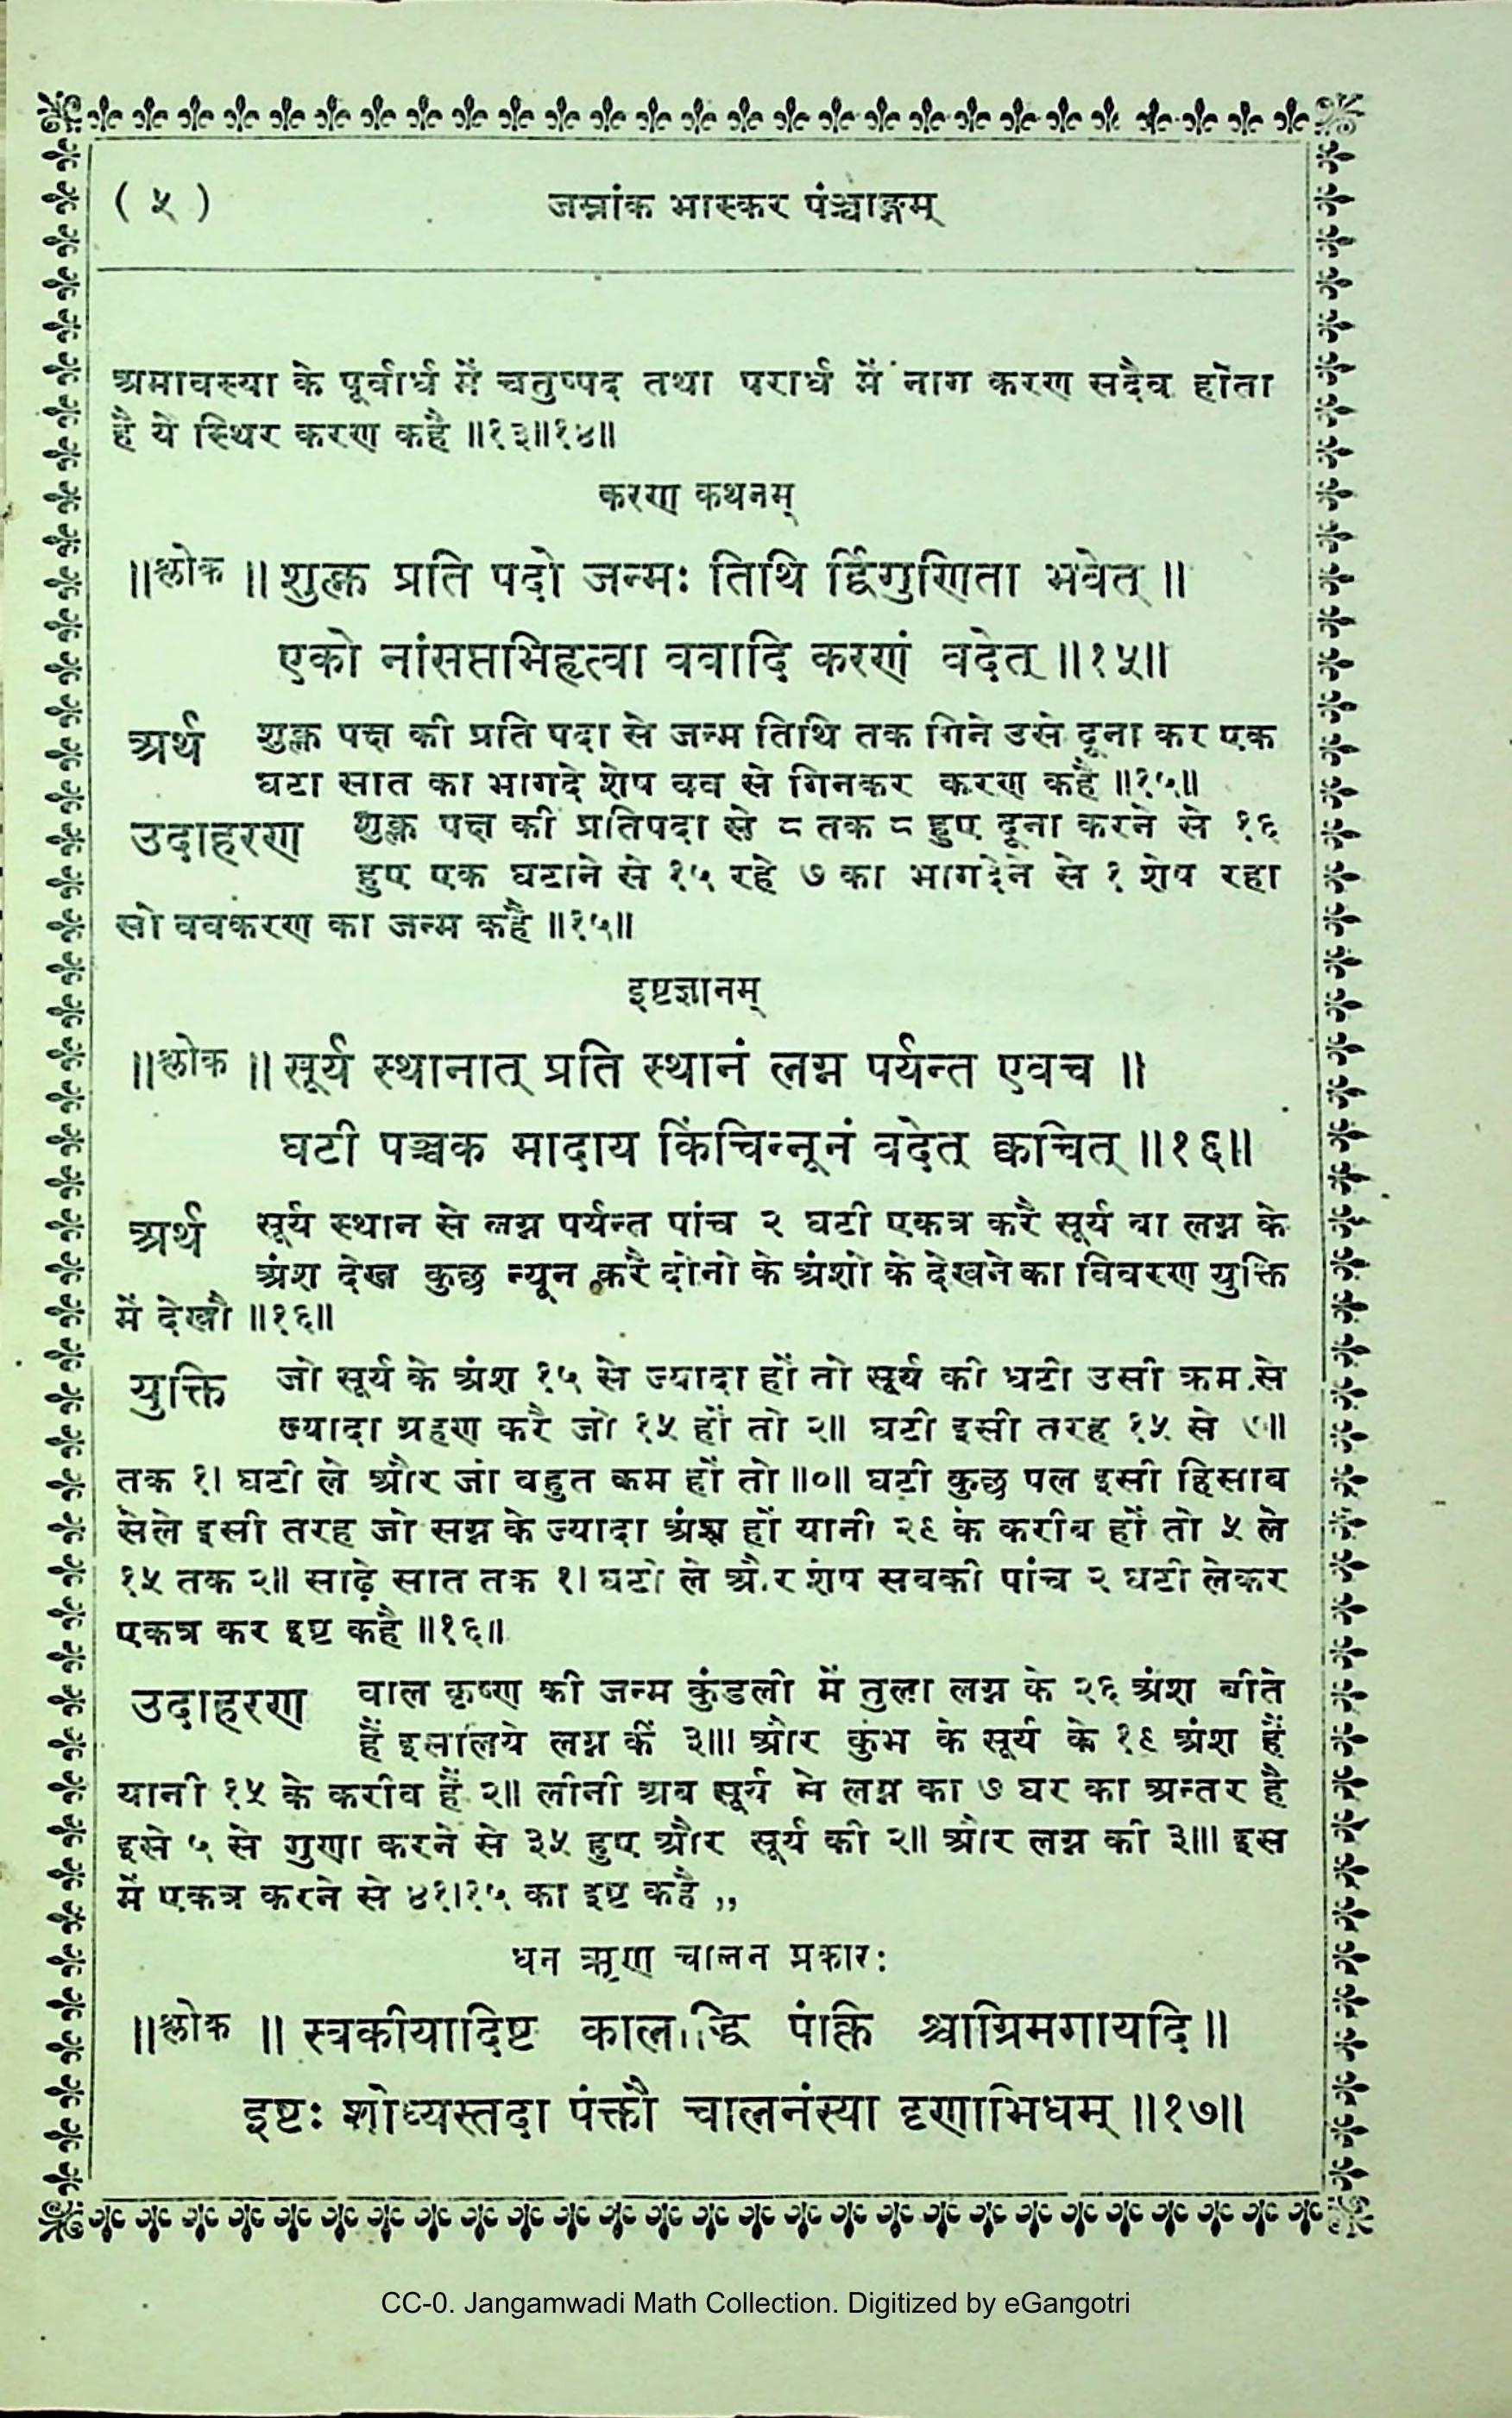 ( ५ ) जन्नांक भास्कर पंञ्चाङ्गम्
अमावस्या के पूर्वार्ध में चतुष्पद तथा परार्ध में नाग करण सदैव होता
है ये स्थिर करण कहै ॥१३॥१४॥
करण कथनम्
॥श्लोक ॥ शुक्ल प्रति पदो जन्मः तिथि र्द्विगुणिता भवेत् ॥
एको नांसप्तभिहृत्वा ववादि करणं वदेत् ॥१५॥
अर्थ शुक्ल पक्ष की प्रति पदा से जन्म तिथि तक गिने उसे दूना कर एक
घटा सात का भागदे शेष वव से गिनकर करण कहै ॥१५॥
उदाहरण शुक्ल पक्ष की प्रतिपदा से ८ तक ८ हुए दूना करने से १६
हुए एक घटाने से १५ रहे ७ का भागदेने से १ शेष रहा
सो ववकरण का जन्म कहै ॥१५॥
इष्टज्ञानम्
॥श्लोक ॥ सूर्य स्थानात् प्रति स्थानं लग्न पर्यन्त एवच ॥
घटी पञ्चक मादाय किंचिन्नूनं वदेत् क्वचित् ॥१६॥
अर्थ सूर्य स्थान से लग्न पर्यन्त पांच २ घटी एकत्र करै सूर्य वा लग्न के
अंश देख कुछ न्यून करै दोनो के अंशो के देखने का विवरण युक्ति
में देखौ ॥१६॥
युक्ति जो सूर्य के अंश १५ से ज्यादा हों तो सूर्य की घटी उसी क्रम से
ज्यादा ग्रहण करै जो १५ हों तो २॥ घटी इसी तरह १५ से ७॥
तक १। घटी ले और जो वहुत कम हों तो ॥०॥ घटी कुछ पल इसी हिसाव
सेले इसी तरह जो लग्न के ज्यादा अंश हों यानी २९ के करीव हों तो ५ ले
१५ तक २॥ साढ़े सात तक १। घटी ले और शेष सवकी पांच २ घटी लेकर
एकत्र कर इष्ट कहै ॥१६॥
उदाहरण वाल कृष्ण की जन्म कुंडली में तुला लग्न के २६ अंश बीते
हैं इसलिये लग्न कीं ३॥। और कुंभ के सूर्य के १९ अंश हैं
यानी १५ के करीव हैं २॥ लीनी अव सूर्य मे लग्न का ७ घर का अन्तर है
इसे ५ से गुणा करने से ३५ हुए और सूर्य की २॥ और लग्न की ३॥। इस
में एकत्र करने से ४१।१५ का इष्ट कहै ,,
धन ऋण चालन प्रकारः
॥श्लोक ॥ स्वकीयादिष्ट कालाद्धि पंक्ति श्चाग्रिमगायदि॥
इष्टः शोध्यस्तदा पंक्तौ चालनंस्या दृणाभिधम् ॥१७॥
CC-0. Jangamwadi Math Collection. Digitized by eGangotri